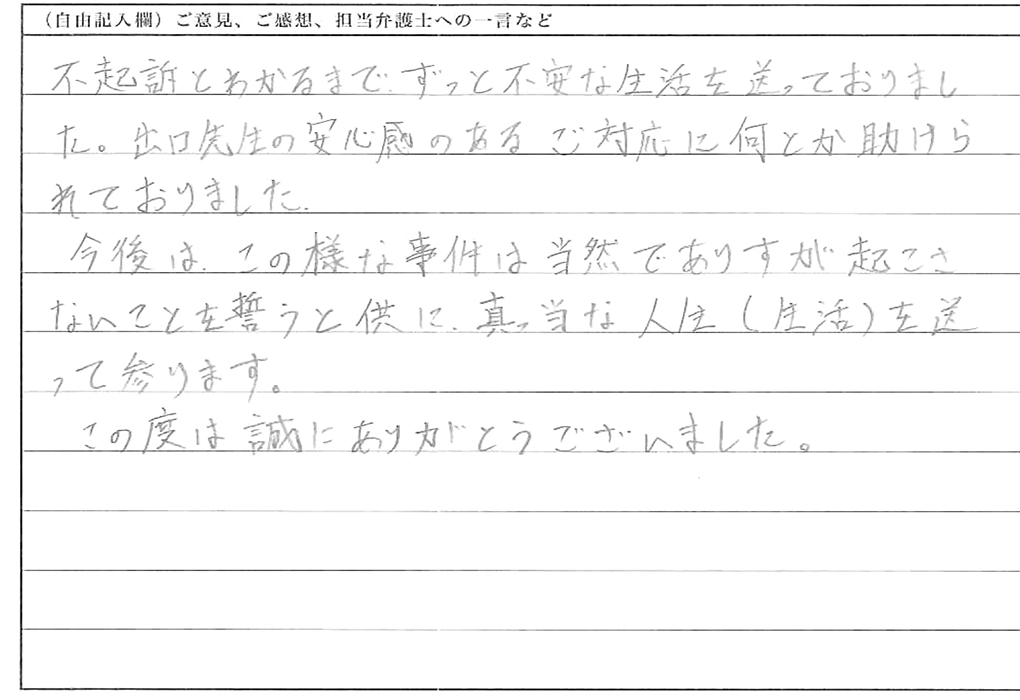 （自由記入欄）ご意見、ご感想、担当弁護士への一言など
不起訴とわかるまで、ずっと不安な生活を送っておりまし
た。出口先生の安心感のあるご対応に何とか助けら
れておりました。
今後は、この様な事件は当然でありすが起こさ
ないことを誓うと供に、真っ当な人生（生活）を送
って参ります。
この度は誠にありがとうございました。